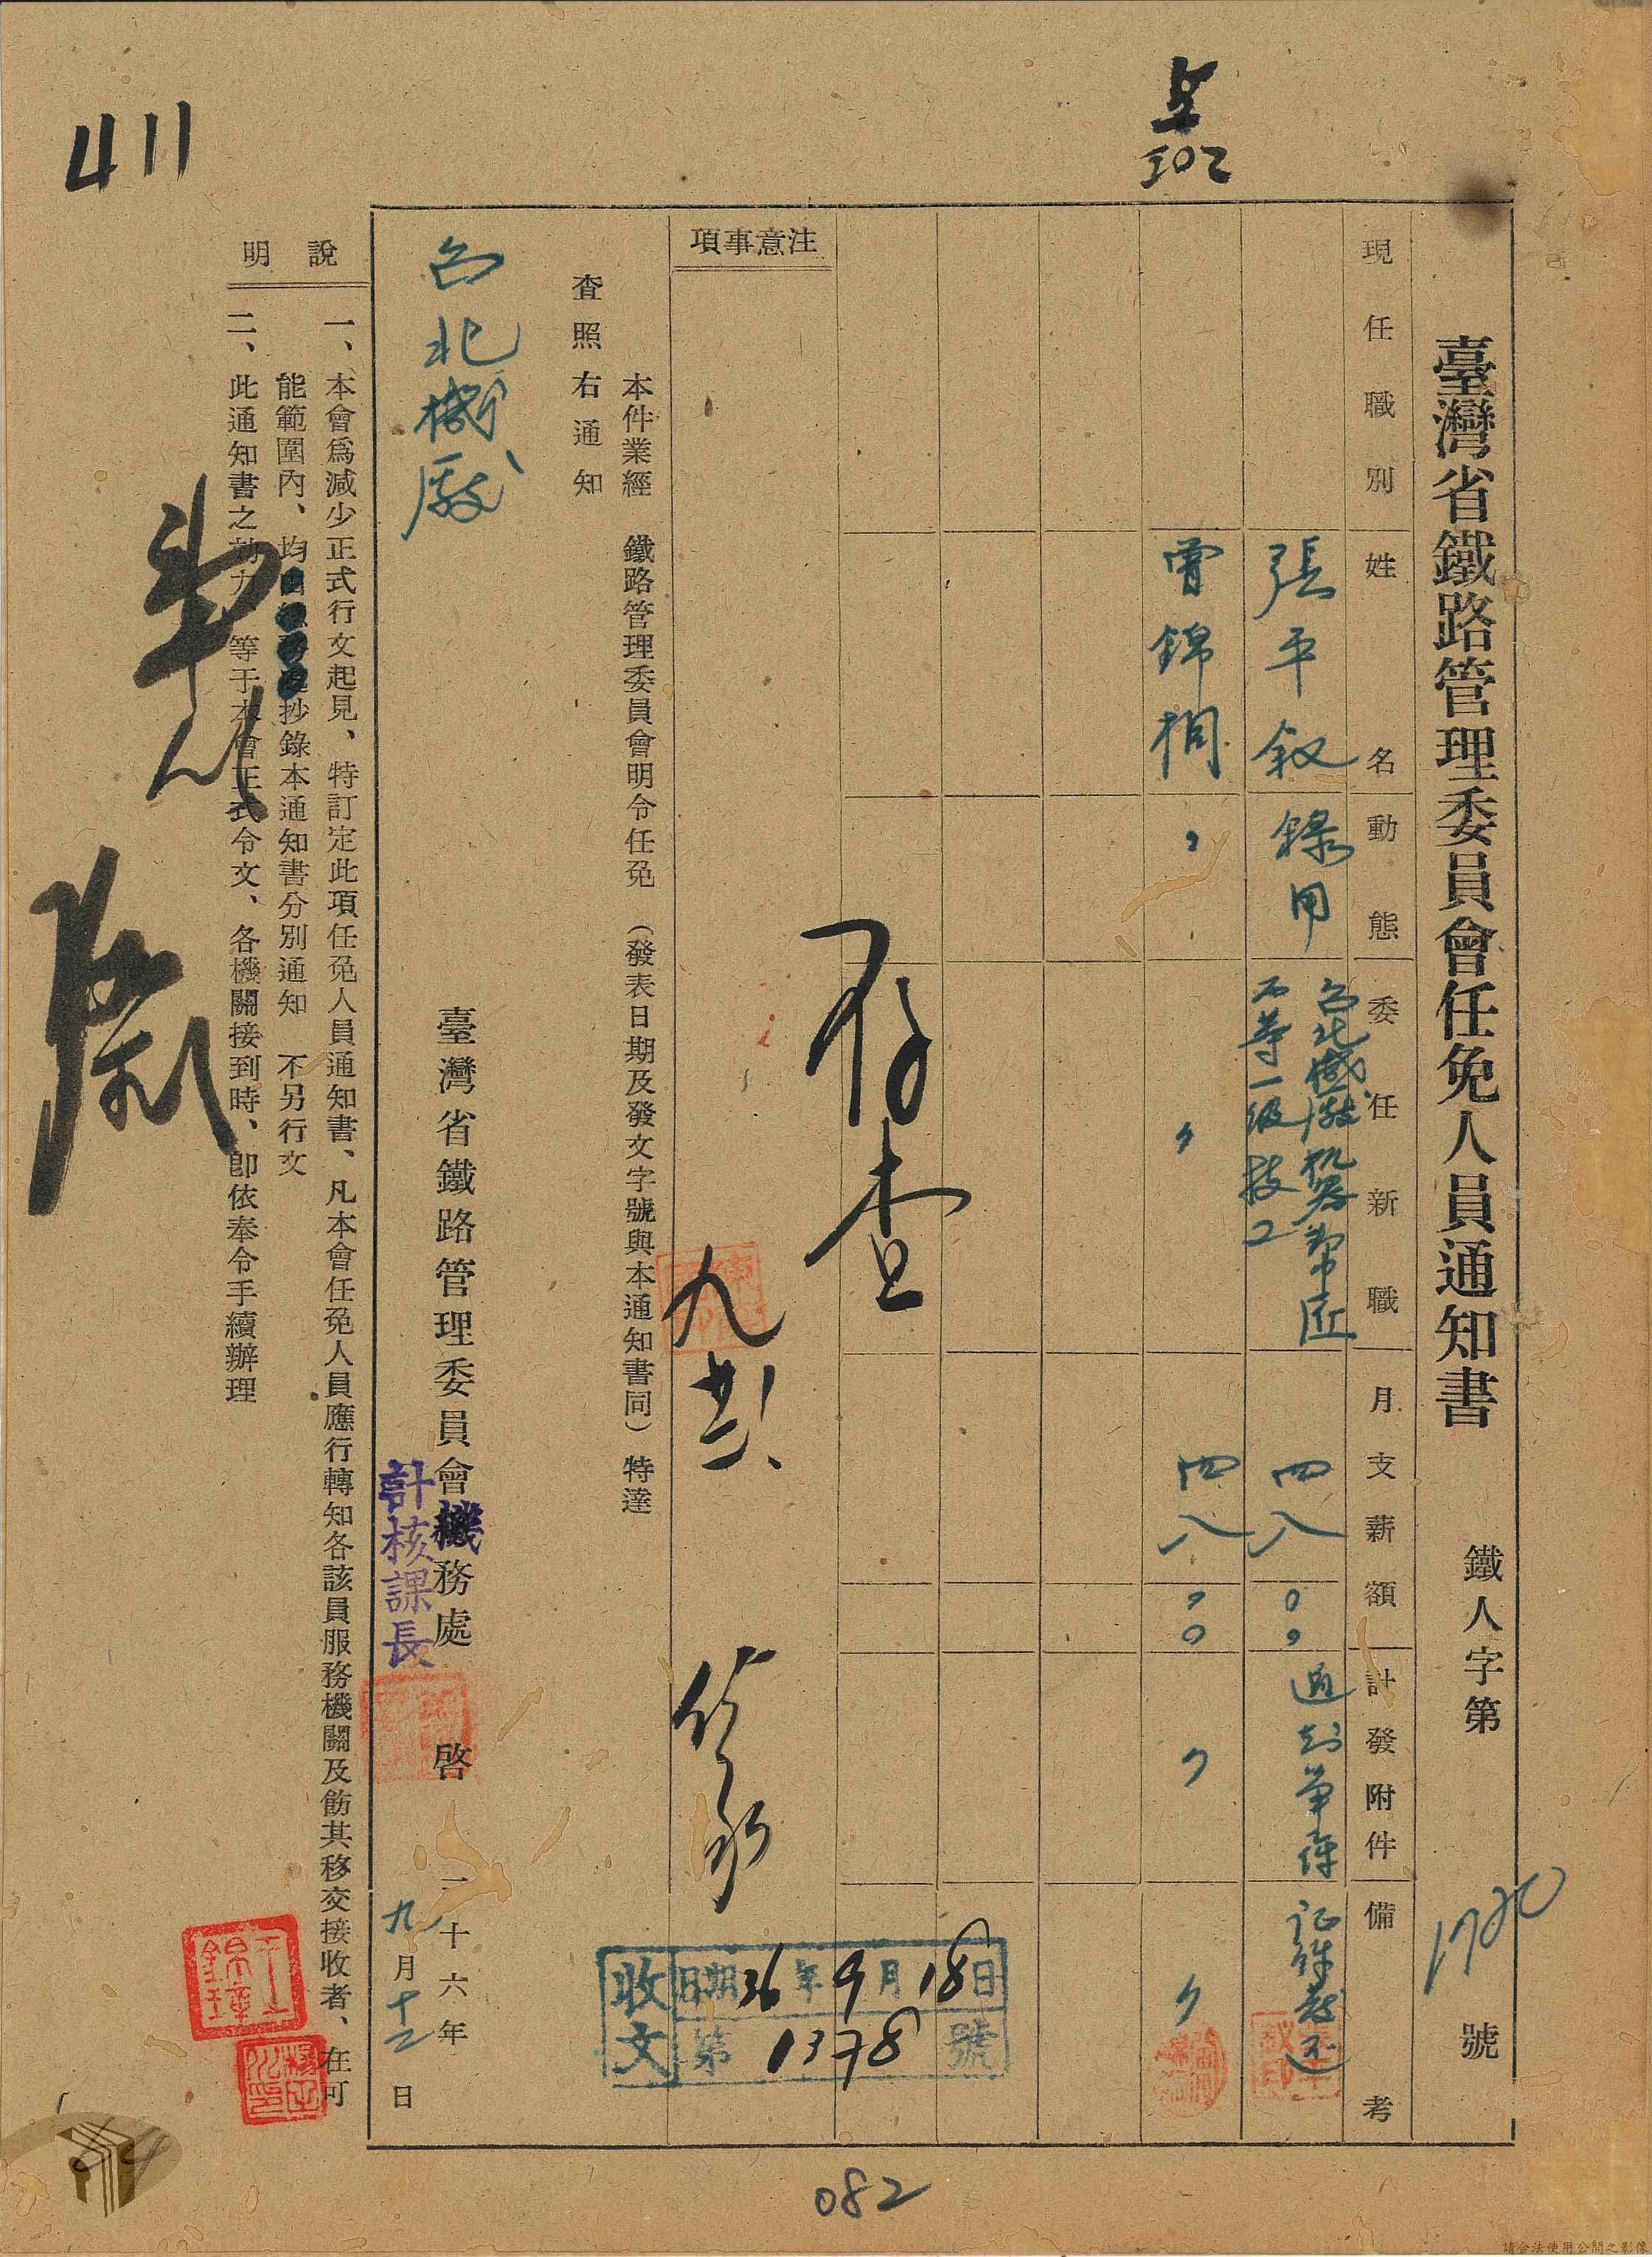 臺灣省鐵路管理委員會任免人員通知書
鐵人字第 1720 號
現任職別
姓名
動態
委任新職
月支薪額
計發附件
備考
張平叙
錄用
台北機廠機器幫匠
不等一級技工
四八〇〇
通知單 件
證件發还
曾錦桐
〃
〃
四八〇〇
〃
〃
注意事項
存查
九 廿一
本件業經 鐵路管理委員會明令任免 （發表日期及發文字號與本通知書同） 特達
查照右通知
台北機廠
臺灣省鐵路管理委員會機務處 啓
計核課長
三十六年
九月十二日
收文
日期 36年9月18日
第 1378 號
說明
一、本會爲減少正式行文起見、特訂定此項任免人員通知書、凡本會任免人員應行轉知各該員服務機關及飭其移交接收者、在可
能範圍內、均 抄錄本通知書分別通知 不另行文
二、此通知書之効力 等于本會正式令文、各機關接到時、卽依奉令手續辦理
411
302
082
請合法使用公開之影像